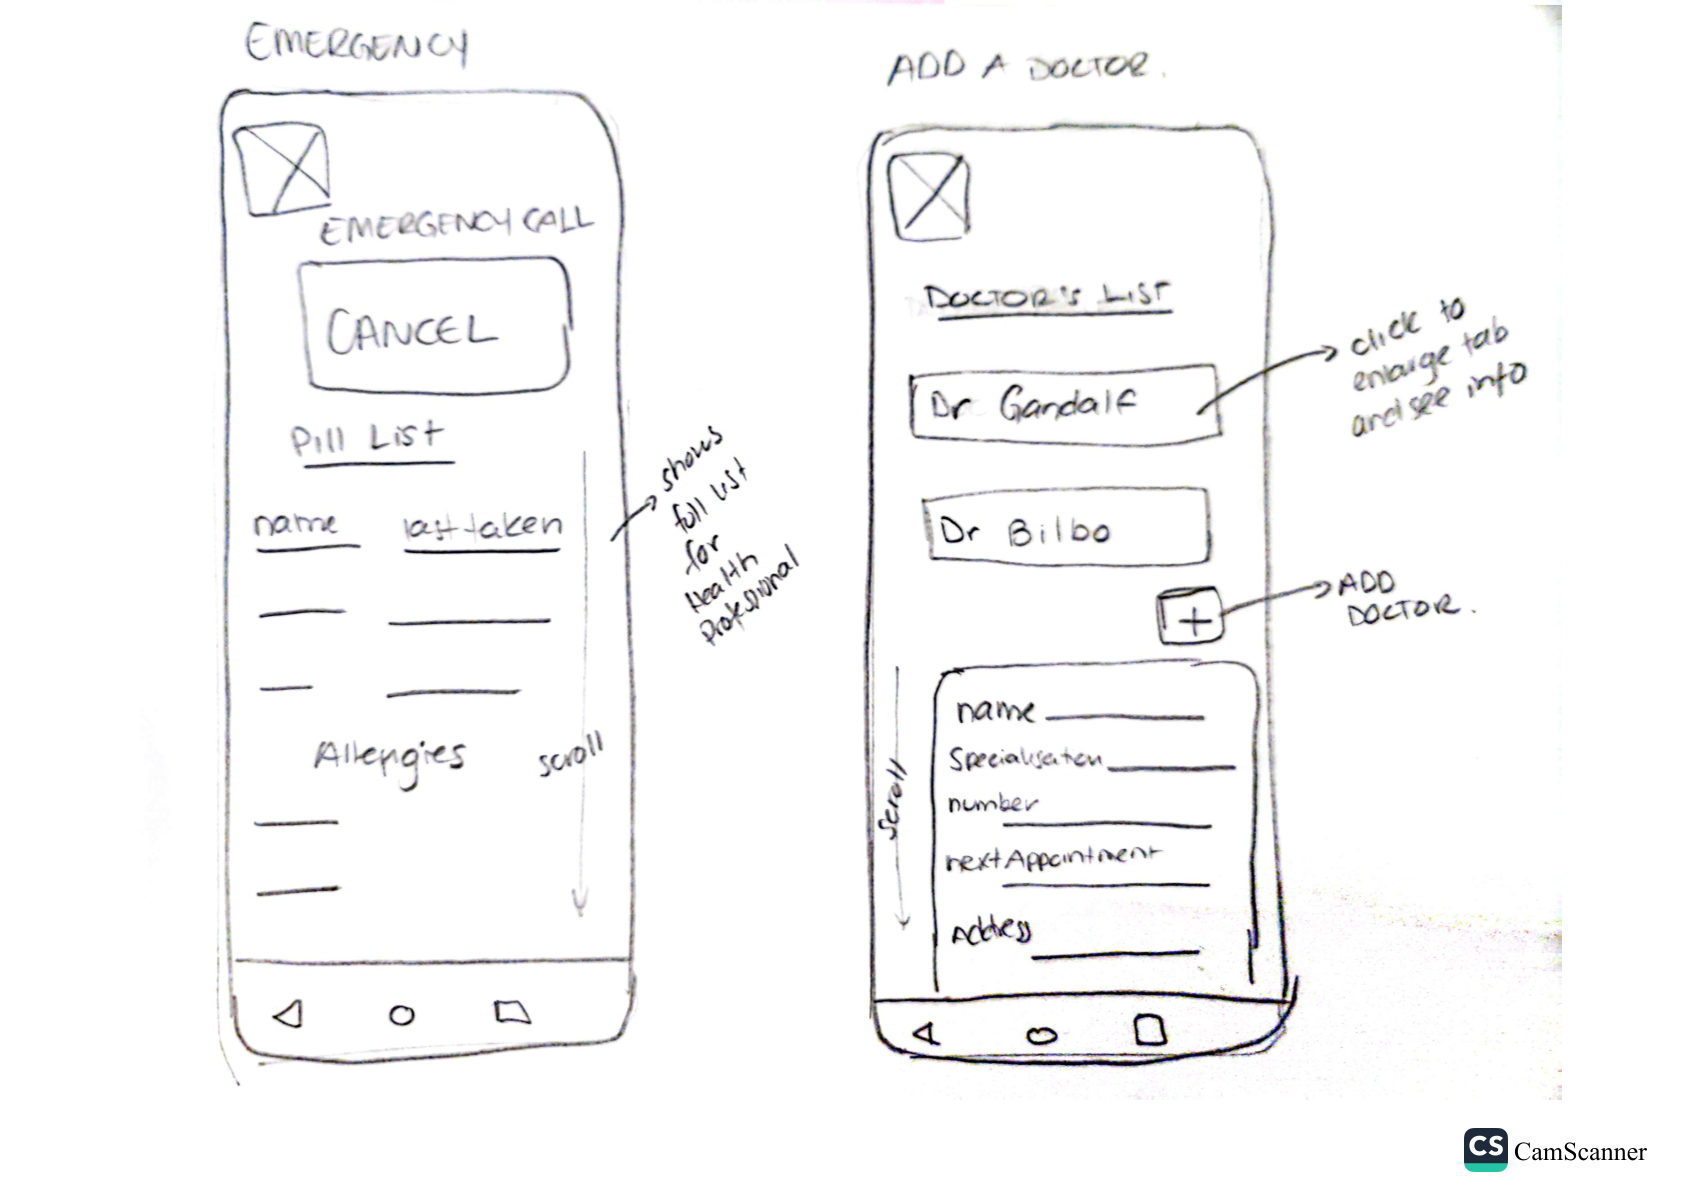 EMERGENCY
EMERGENCY CALL
CANCEL
Pill List
name last taken
Allergies
scroll
shows
full list
for
Health
Professional
ADD A DOCTOR.
DOCTOR'S LIST
Dr Gandalf
click to
enlarge tab
and see info
Dr Bilbo
+
ADD
DOCTOR.
scroll
name
Specialisation
number
next Appointment
Address
CS CamScanner